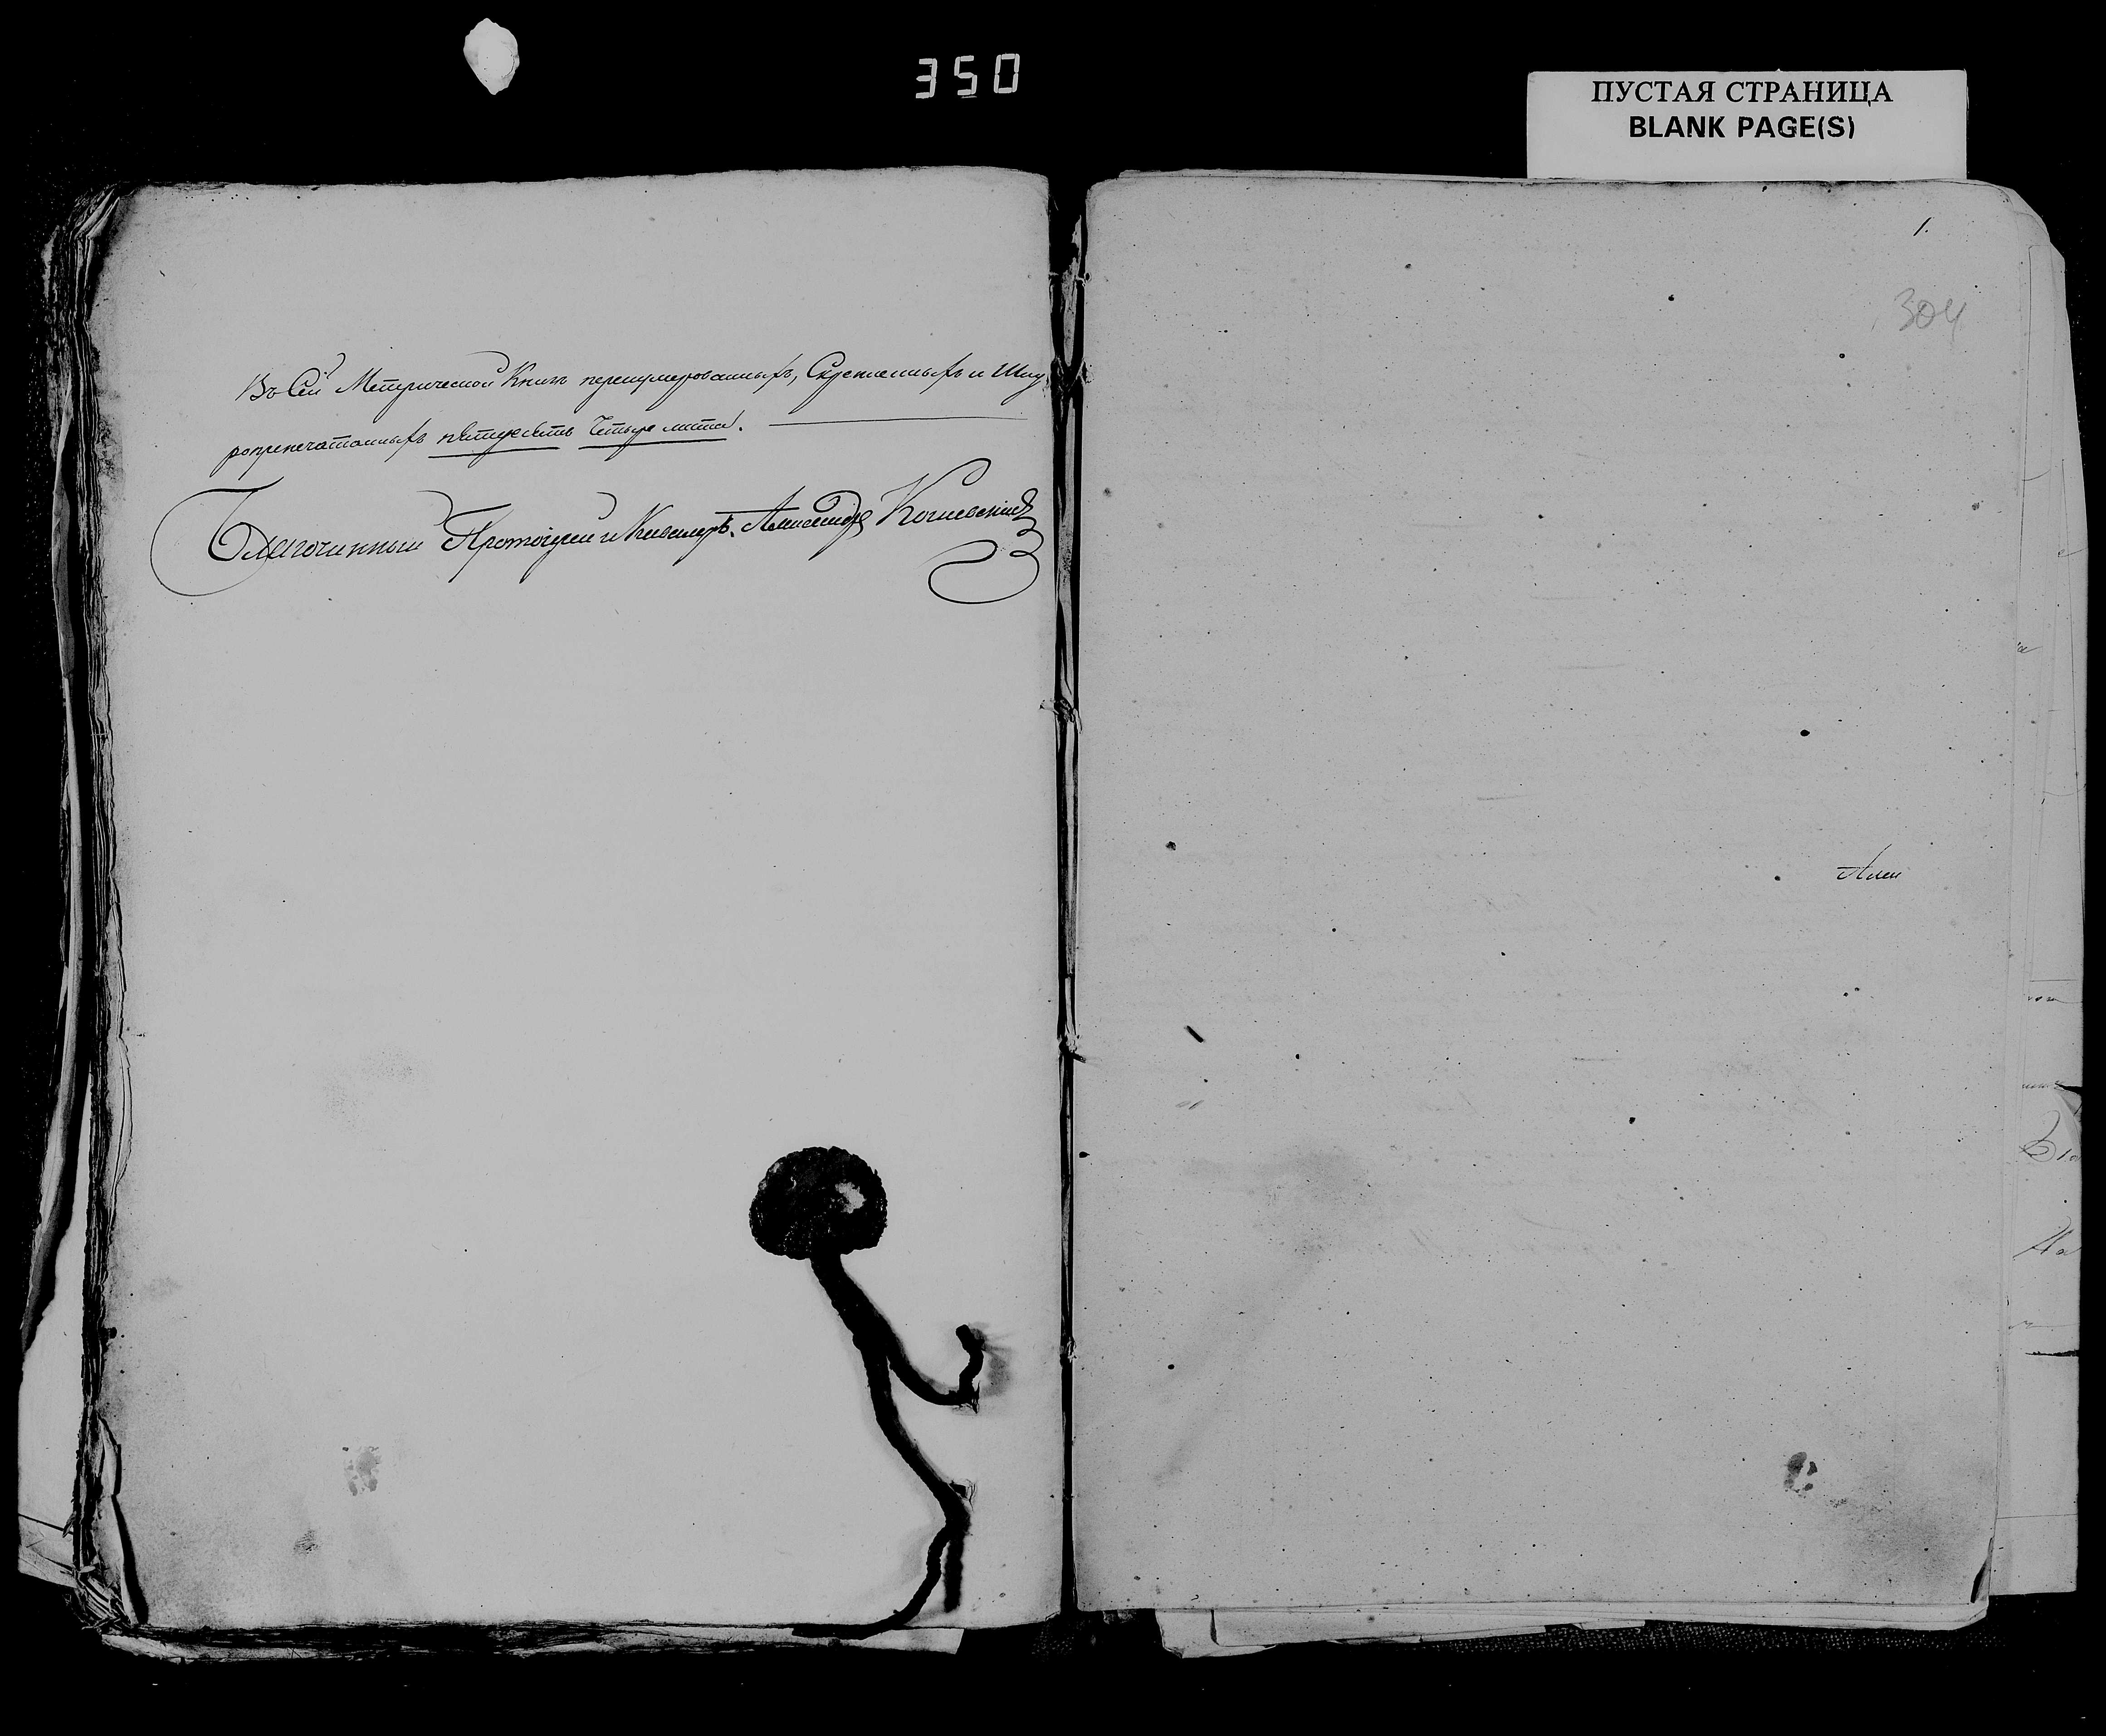 350
ПУСТАЯ СТРАНИЦА
BLANK PAGE(S)
Въ Сей Метрической Книге перенумерованныхъ, Скрепленныхъ и Шну
ропечатанныхъ пятдесятъ Четыре листа.
Благочинный Протоіерей и Кавалеръ Александръ
1.
304
Алек